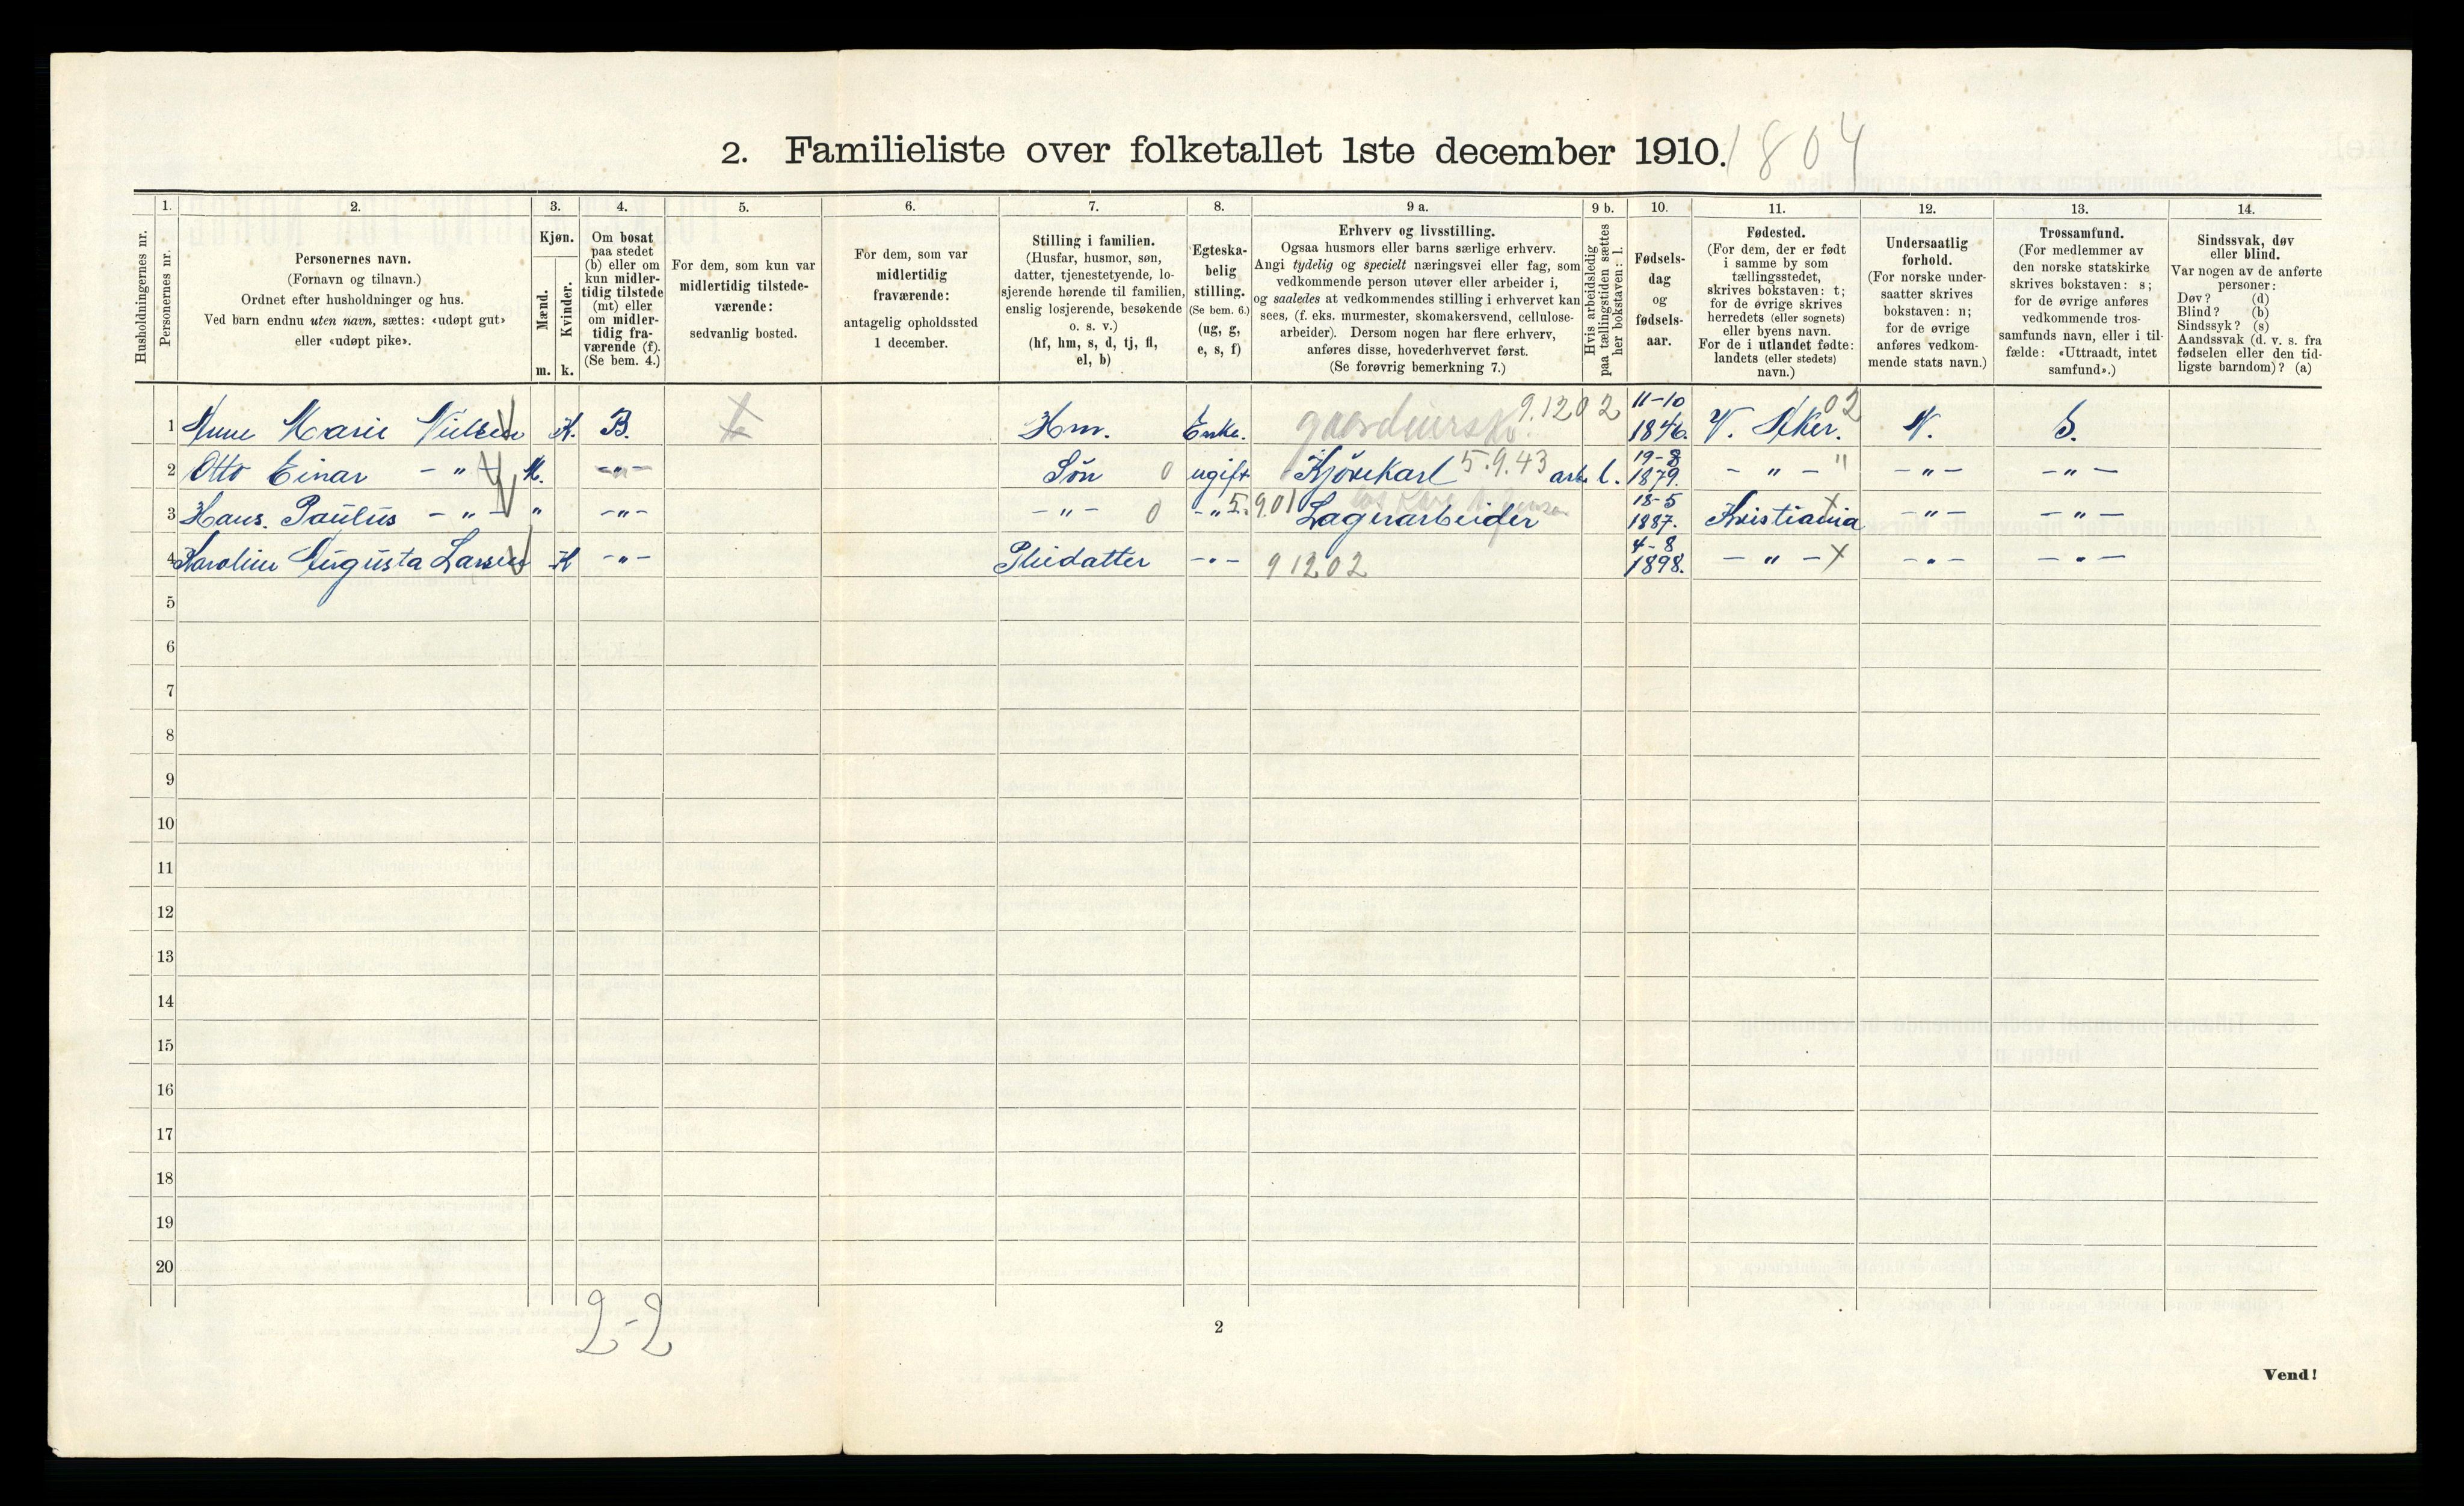 2. Familieliste over folketallet 1ste december 1910. 1804
1. 2. 3. 4. 5. 6. 7. 8. 9 a. 9 b. 10. 11. 12. 13. 14.
Husholdningernes nr.
Personernes nr.
Personernes navn.
(Fornavn og tilnavn.)
Ordnet efter husholdninger og hus.
Ved barn endnu uten navn, sættes: «udøpt gut»
eller «udøpt pike».
Kjøn.
Mænd.
Kvinder.
m. k.
Om bosat
paa stedet
(b) eller om
kun midler-
tidig tilstede
(mt) eller
om midler-
tidig fra-
værende (f).
(Se bem. 4.)
For dem, som kun var
midlertidig tilstede-
værende:
sedvanlig bosted.
For dem, som var
midlertidig
fraværende:
antagelig opholdssted
1 december.
Stilling i familien.
(Husfar, husmor, søn,
datter, tjenestetyende, lo-
sjerende hørende til familien,
enslig losjerende, besøkende
o. s. v.)
(hf, hm, s, d, tj, fl,
el, b)
Egteska-
belig
stilling.
(Se bem. 6.)
(ug, g,
e, s, f)
Erhverv og livsstilling.
Ogsaa husmors eller barns særlige erhverv.
Angi tydelig og specielt næringsvei eller fag, som
vedkommende person utøver eller arbeider i,
og saaledes at vedkommendes stilling i erhvervet kan
sees, (f. eks. murmester, skomakersvend, cellulose-
arbeider). Dersom nogen har flere erhverv,
anføres disse, hovederhvervet først.
(Se forøvrig bemerkning 7.)
Hvis arbeidsledig
paa tællingstiden sættes
her bokstaven: l.
Fødsels-
dag
og
fødsels-
aar.
Fødested.
(For dem, der er født
i samme by som
tællingsstedet,
skrives bokstaven: t;
for de øvrige skrives
herredets (eller sognets)
eller byens navn.
For de i utlandet fødte:
landets (eller stedets)
navn.)
Undersaatlig
forhold.
(For norske under-
saatter skrives
bokstaven: n;
for de øvrige
anføres vedkom-
mende stats navn.)
Trossamfund.
(For medlemmer av
den norske statskirke
skrives bokstaven: s;
for de øvrige anføres
vedkommende tros-
samfunds navn, eller i til-
fælde: «Uttraadt, intet
samfund».)
Sindssvak, døv
eller blind.
Var nogen av de anførte
personer:
Døv? (d)
Blind? (b)
Sindssyk? (s)
Aandssvak (d. v. s. fra
fødselen eller den tid-
ligste barndom)? (a)
1 Anne Marie Nielsen K. B. Hm. Enke. 9.1202 11-10 1846. V. Aker. 02 N. S.
2 Otto Einar - " - M. - " - Søn 0 ugift Kjørekarl 5.9.43 arb. l. 19-8 1879. - " - " - " - - " -
3 Hans. Paulus - " - " - " - - " - 0 - " 5.9.01 Lagerarbeider 18-5 1887. Kristiania - " - - " -
4 Karoline Augusta Larsen K - " - Pleiedatter - " - 91202 4-8 1898. - " - - " - - " -
5
6
7
8
9
10
11
12
13
14
15
16
17
18
19
20
2-2
2
Vend!